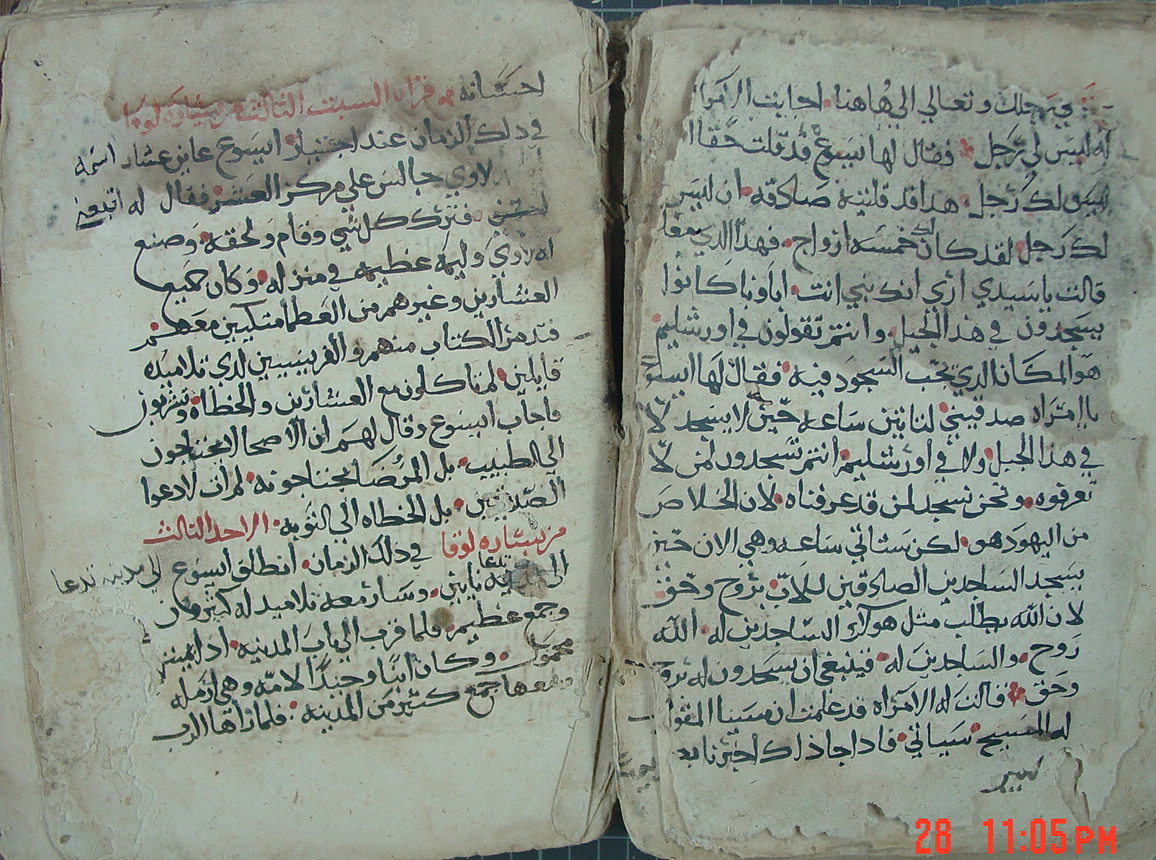 رجلك وتعالي الي هاهنا اجابت الامراه
له ليس لي رجل فقال لها ايسوع قد قلت حقا
ليس لك رجل هدا قد قلتيه صادقه ان ليس
لك رجل لقد كان لك خمسه ازواج فهدا الدي معك
قالت يا سيدي اري انك نبي انت اباونا كانوا
يسجدون في هدا الجبل وانتم تقولون في اورشليم
هو المكان الدي يجب السجود فيه فقال لها ايسوع
ياامراه صدقيني لتاتين ساعه حين لا يسجد لا
في هدا الجبل ولا في اورشليم انتم تسجدون لمن لا
تعرفوه ونحن نسجد لمن قد عرفناه لان الخلاص
من اليهود هو لكن ستاتي ساعه وهي الان حين
يسجد الساجدين الصادقين للاب بروح وحق
لان الله يطلب مثل هولاء الساجدين له الله
روح والساجدين له فينبغي ان يسجدون له بروح
وحق قالت له الامراه قد علمت ان مسيا المقول
له المسيح سياتي فادا جا داك اخبرنا
كبير
لحسانه قراه السبت الثالث من بشاره لوقا
في دلك الزمان عند اجتياز ايسوع عاين عشار اسمه
لاوي جالس علي مركز العشر فقال له اتبعني
فترك كل شي وقام ولحقه وصنع
له لاوي وليمه عظيمه في منزله وكان جميع
العشارين وغيرهم من العظما متكيين معهم
فتدمر الكتاب منهم والفريسيين لدي تلاميده
قايلين لم تاكلون مع العشارين والخطاه وتشربون
فاجاب ايسوع وقال لهم ان الاصحا لا يحتاجون
الي الطبيب بل المرضا يحتاجونه لم ات لادعوا
الصديقين بل الخطاه الي التوبه الاحد الثالث
من بشاره لوقا في دلك الزمان انطلق ايسوع الي مدينه تدعا
نايين وسار معه تلاميد له كثيرون
وجمع عظيم فلما قرب الي باب المدينه ادا بميت
محمول وكان ابنا وحيدا لامه وهي ارمله
ومعها جمع كثير من المدينه فلما راها الرب
28 11:05 PM